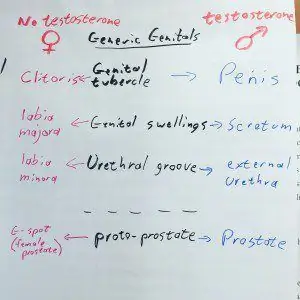 No testosterone testosterone
♀ Generic Genitals ♂
Clitoris ← Genital tubercle → Penis
labia majora ← Genital swellings → Scrotum
labia minora ← Urethral groove → external urethra
— — — — —
G-spot (female prostate) ← proto-prostate → Prostate